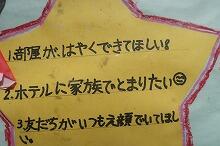 1.部屋が、はやくできてほしい!
2.ホテルに家族でとまりたい
3.友だちがいつもえ顔でいてほし
い。